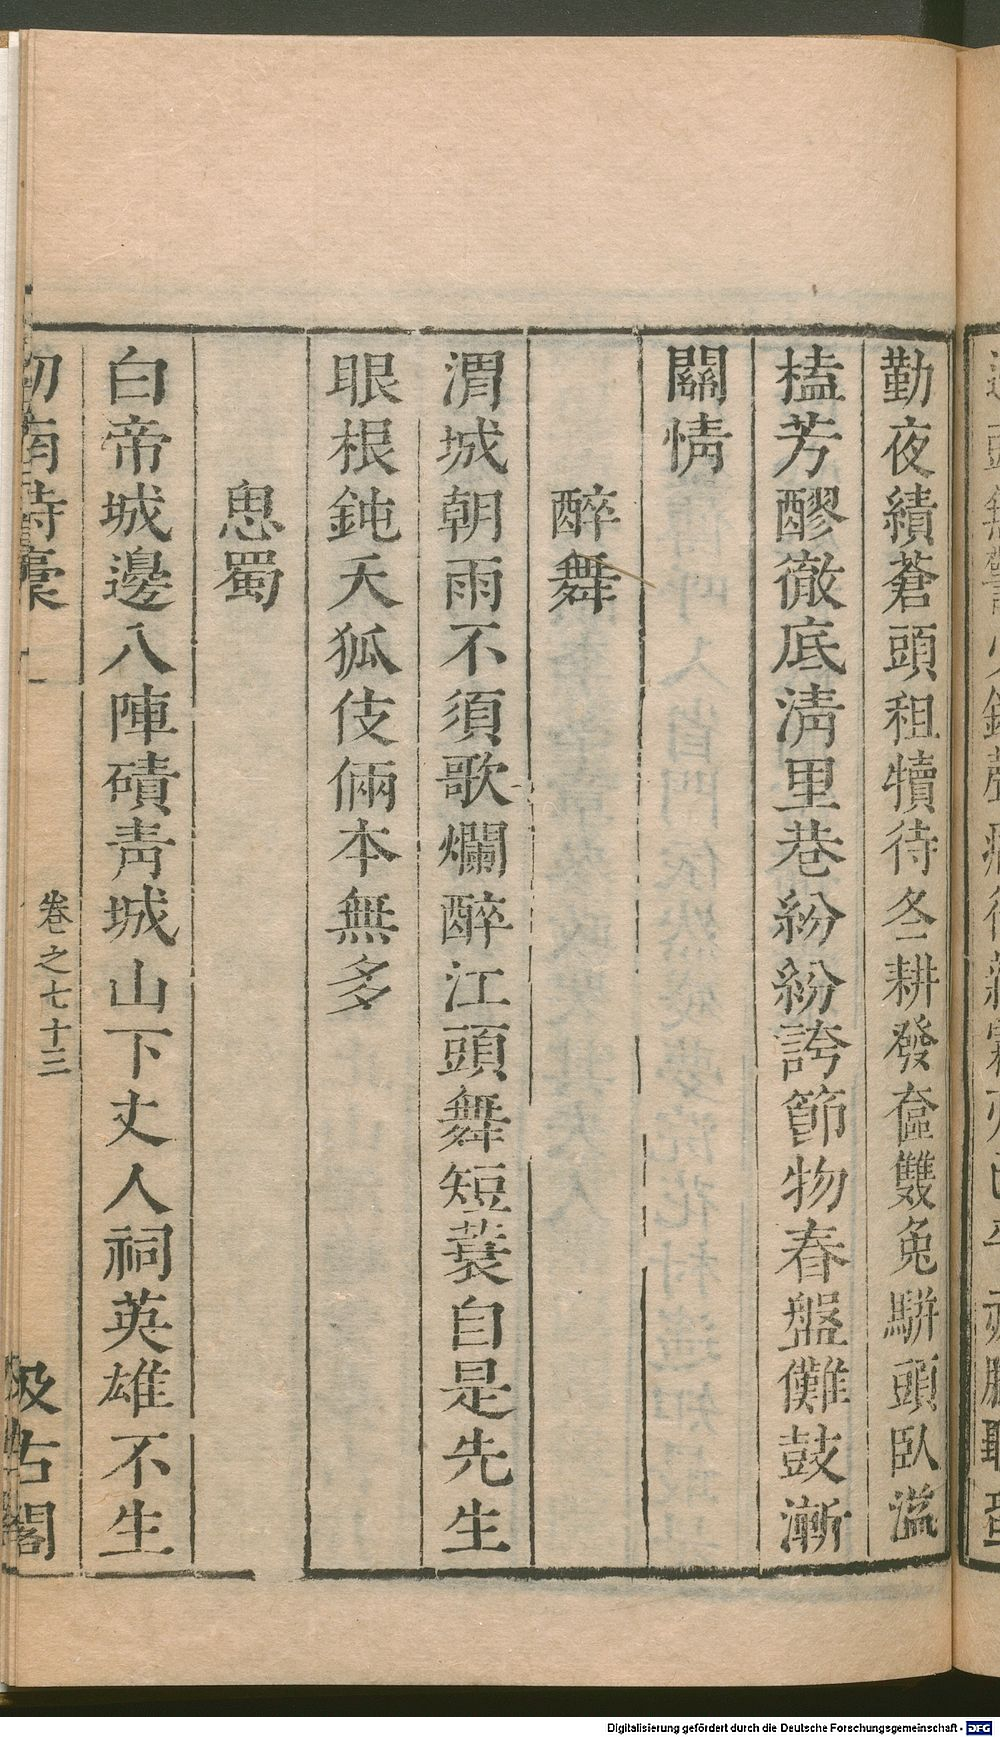 勤夜績蒼頭租犢待冬耕發奩雙兔駢頭臥溢
榼芳醪徹底清里巷紛紛誇節物春盤儺鼓漸
關情
醉舞
渭城朝雨不須歌爛醉江頭舞短蓑自是先生
眼根鈍天狐伎倆本無多
思蜀
白帝城邊八陣磧青城山下丈人祠英雄不生
劒南詩稾
卷之七十三
汲古閣
Digitalisierung gefördert durch die Deutsche Forschungsgemeinschaft - DFG